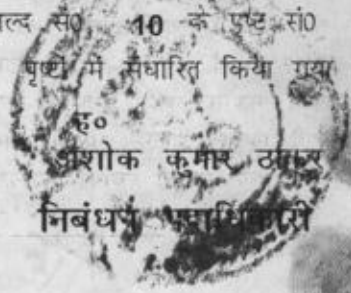 ल्द सं० 10 के पृष्ट सं०
पृष्टों में संधारित किया गया
ह०
अशोक कुमार ठाकुर
निबंधन पदाधिकारी